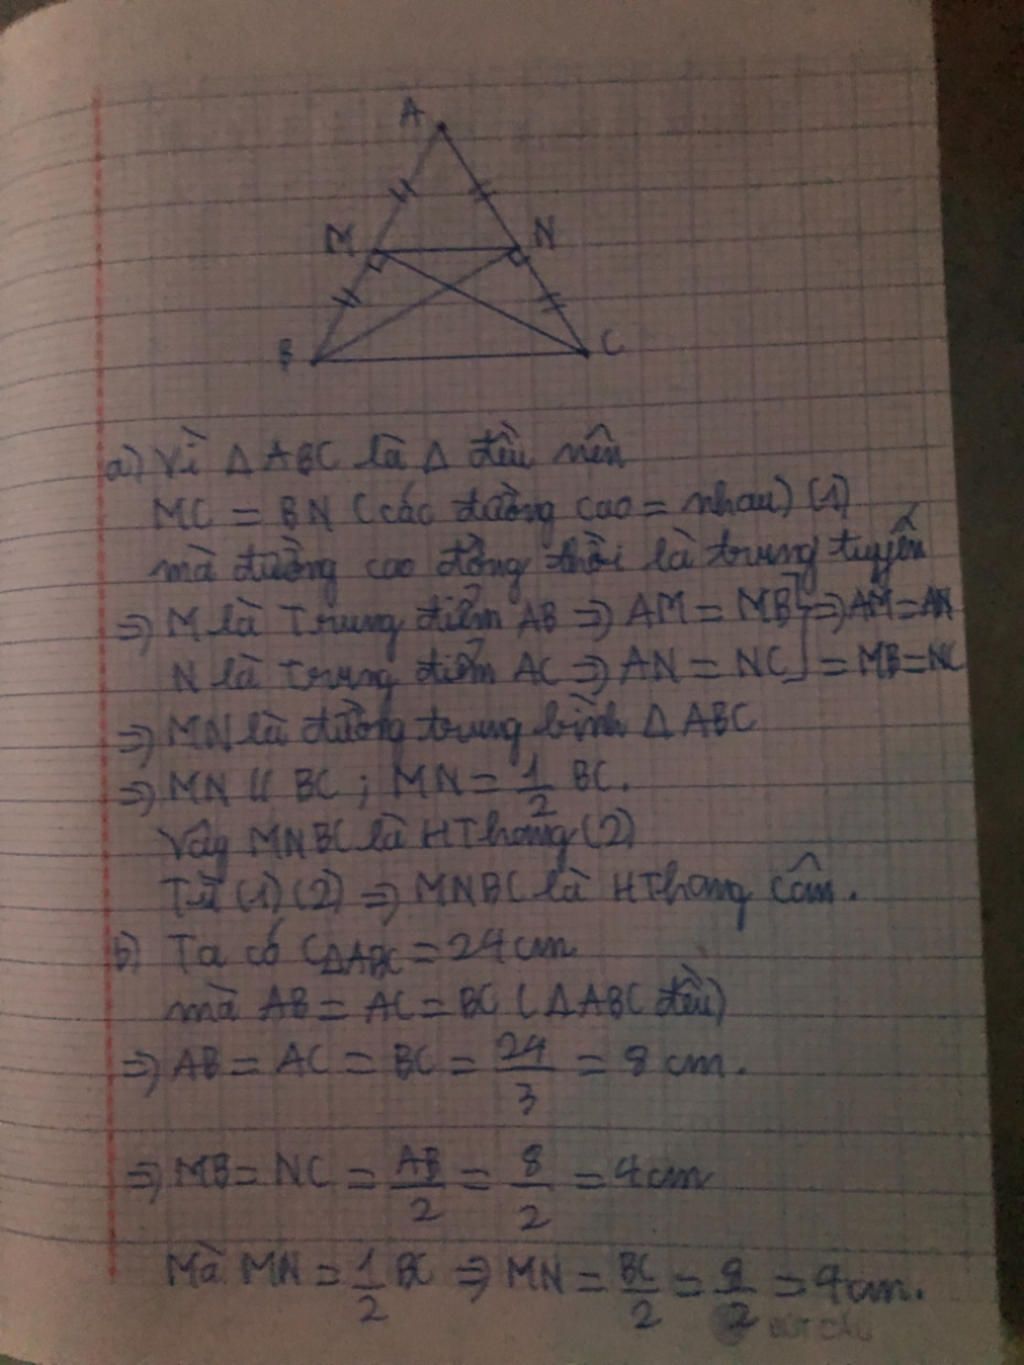 A
M
N
B
C
a) Vì Δ ABC là Δ đều nên
MC = BN (các đường cao = nhau) (1)
mà đường cao đồng thời là trung tuyến
=> M là Trung điểm AB => AM = MB } => AM = AN
N là Trung điểm AC => AN = NC } = MB = NC
=> MN là đường trung bình Δ ABC
=> MN // BC ; MN = 1/2 BC.
Vậy MNBC là HThang (2)
Từ (1) (2) => MNBC là HThang cân.
b) Ta có CΔABC = 24 cm
mà AB = AC = BC (ΔABC đều)
=> AB = AC = BC = 24/3 = 8 cm.
=> MB = NC = AB/2 = 8/2 = 4 cm
Mà MN = 1/2 BC => MN = BC/2 = 8/2 = 4 cm.